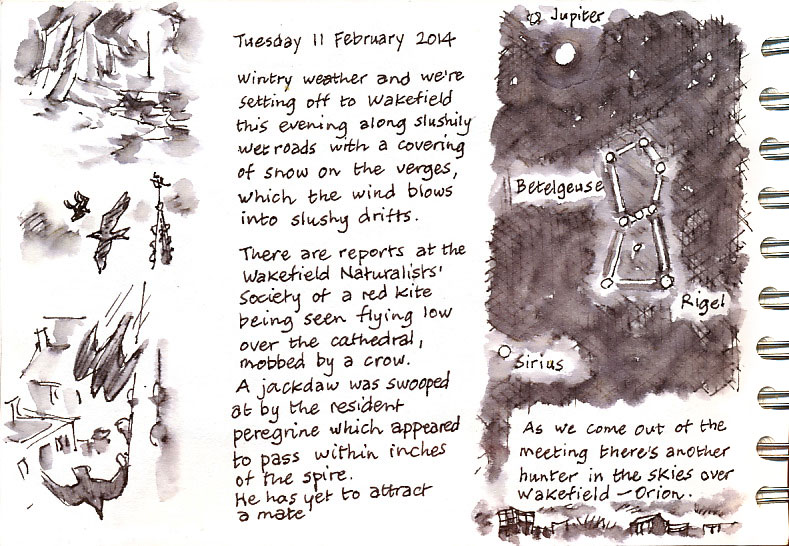 Tuesday 11 February 2014
Wintry weather and we're
setting off to Wakefield
this evening along slushily
wet roads with a covering
of snow on the verges,
which the wind blows
into slushy drifts.
There are reports at the
Wakefield Naturalists'
Society of a red kite
being seen flying low
over the cathedral,
mobbed by a crow.
A jackdaw was swooped
at by the resident
peregrine which appeared
to pass within inches
of the spire.
He has yet to attract
a mate
Jupiter
Betelgeuse
Rigel
Sirius
As we come out of the
meeting there's another
hunter in the skies over
Wakefield – Orion.